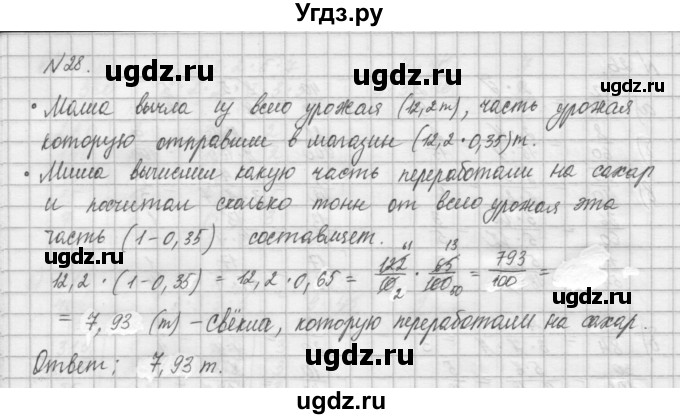 Угдз.ру
N28. ugdz.ru ugdz.ru
• Маша вычла из всего урожая (12,2т), часть урожая
которую отправили в магазин (12,2 · 0,35)т.
• Миша вычислил какую часть переработали на сахар
и посчитал сколько тонн от всего урожая эта
часть (1-0,35) составляет.
12,2 · (1-0,35) = 12,2 · 0,65 = 122/10 · 65/100 = 793/100 =
= 7,93 (т) - свёкла, которую переработали на сахар.
Ответ: 7,93 т.
ugdz.ru
ugdz.ru
ugdz.ru
ugdz.ru
ugdz.ru
ugdz.ru